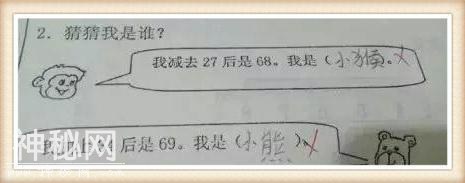 2. 猜猜我是谁？
我减去 27 后是 68。我是（小猴。
后是 69。我是（小熊）
神秘网